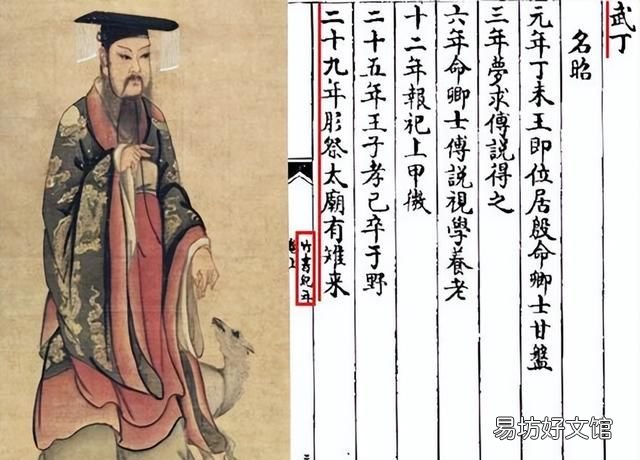 武丁
名昭
元年丁未王即位居殷命卿士甘盤
三年夢求傅說得之
六年命卿士傅說視學養老
十二年報祀上甲微
二十五年王子孝己卒于野
二十九年肜祭太廟有雉来
竹書紀
易坊好文馆